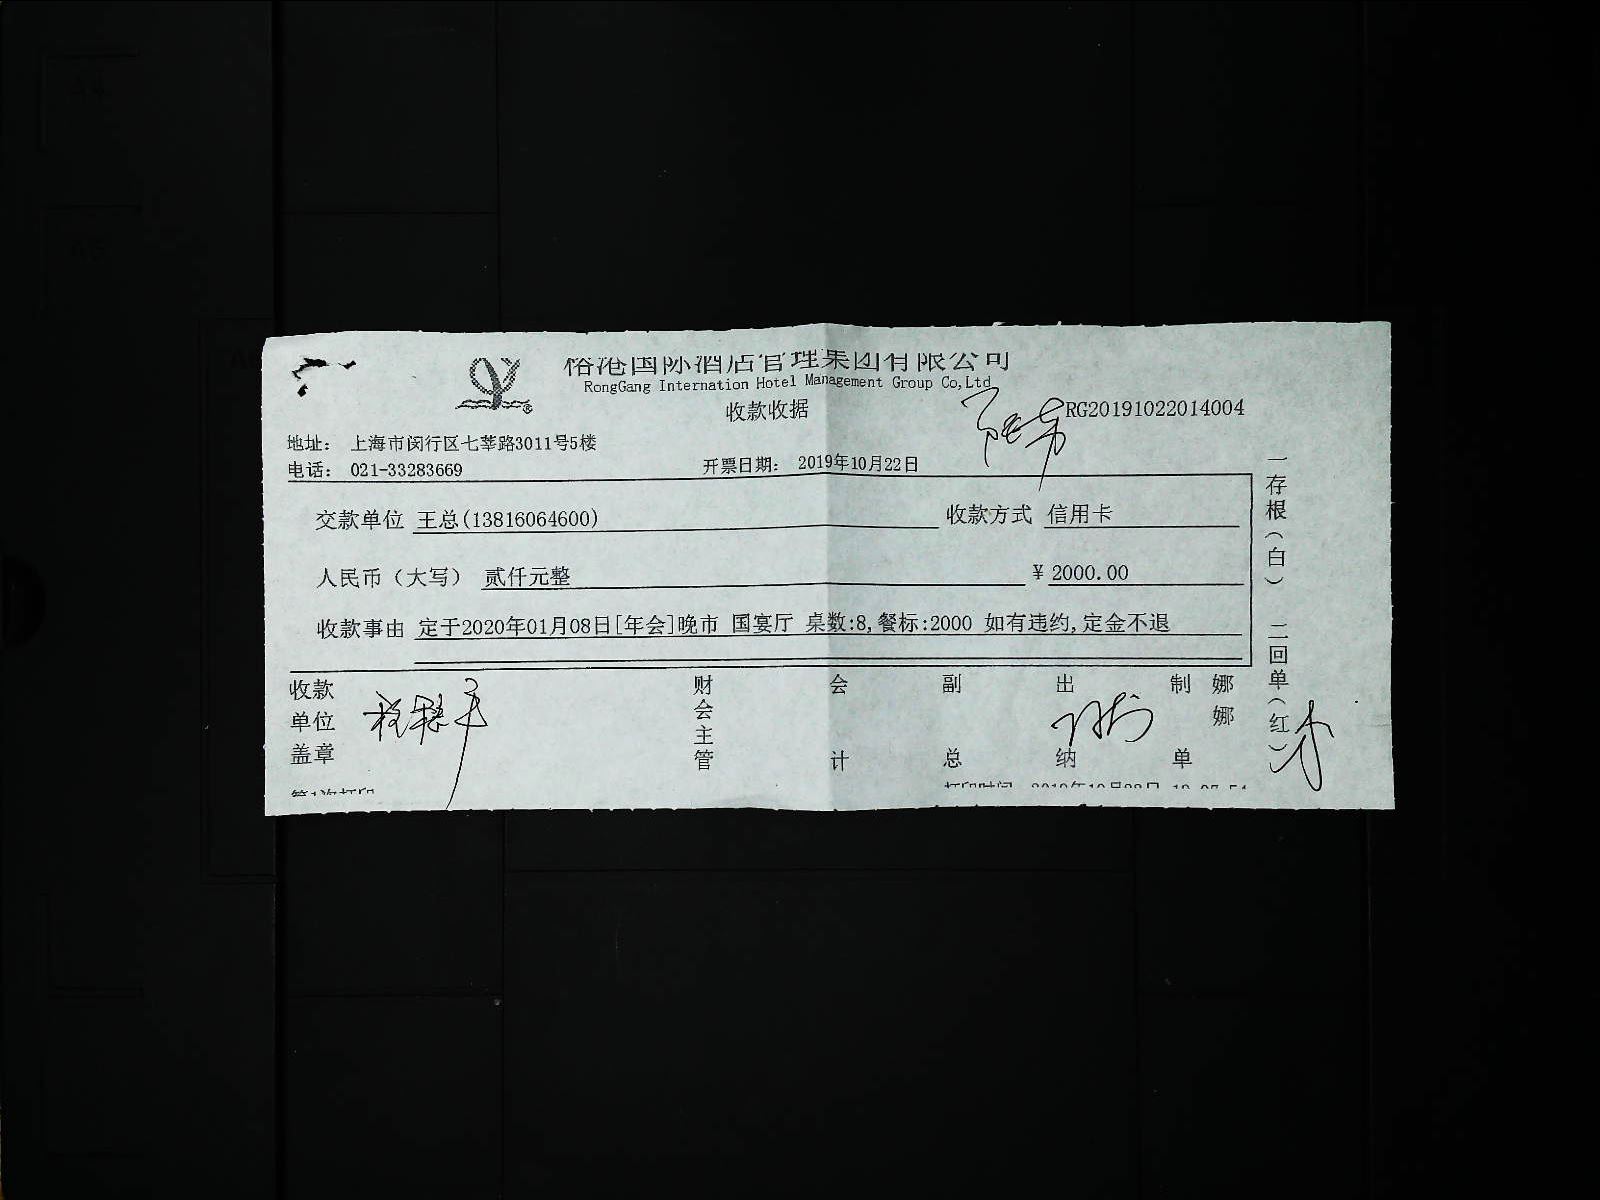 国际酒店管理集团有限公司
RongGang Internation Hotel Management Group Co,Ltd
收款收据
RG20191022014004
地址： 上海市闵行区七莘路3011号5楼
电话： 021-33283669
开票日期： 2019年10月22日
交款单位 王总(13816064600)
收款方式 信用卡
人民币（大写） 贰仟元整
¥ 2000.00
收款事由 定于2020年01月08日[年会]晚市 国宴厅 桌数:8,餐标:2000 如有违约,定金不退
收款单位盖章
财会主管
会计
副总
出纳
制单
娜娜
一存根（白） 二回单（红）
第1次打印